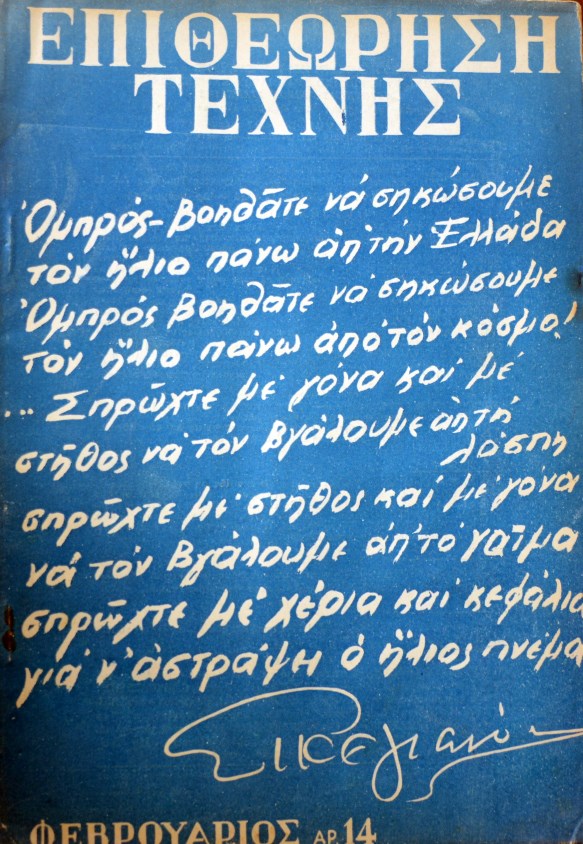 ΕΠΙΘΕΩΡΗΣΗ
ΤΕΧΝΗΣ
Ὀμπρός-βοηθᾶτε νά σηκώσουμε
τόν ἥλιο πάνω ἀπ' τήν Ἑλλάδα
Ὀμπρός βοηθᾶτε νά σηκώσουμε
τόν ἥλιο πάνω ἀπό τόν κόσμο!
... Σπρῶχτε μέ γόνα καί μέ
στῆθος νά τόν βγάλουμε ἀπ' τή
λάσπη
σπρῶχτε μέ στῆθος καί μέ γόνα
νά τόν βγάλουμε ἀπ' τό γαῖμα
σπρῶχτε μέ χέρια καί κεφάλια
γιά ν' ἀστράψῃ ὁ ἥλιος πνέμα
Σικελιανός
ΦΕΒΡΟΥΑΡΙΟΣ ΑΡ. 14